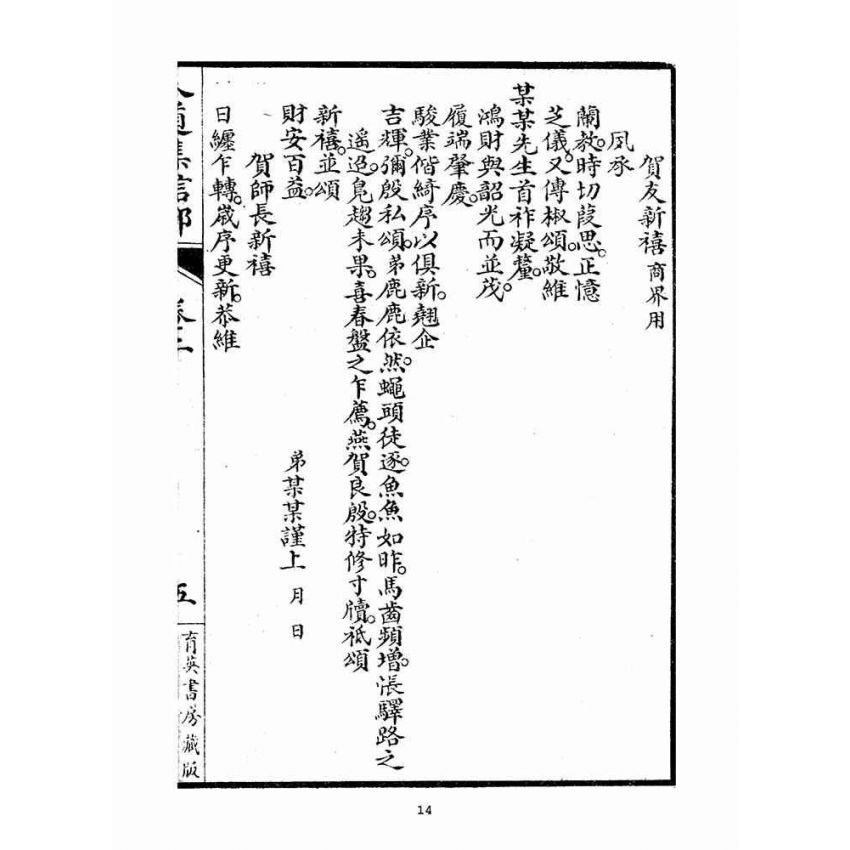 賀友新禧 商界用
夙承
蘭教。時切葭思。正憶
芝儀。又傳椒頌。敬維
某某先生首祚凝釐。
鴻財與韶光而並茂。
履端肇慶。
駿業偕綺序以俱新。翹企
吉輝。彌殷私頌。弟鹿鹿依然。蠅頭徒逐。魚魚如昨。馬齒頻增。悵驛路之
遥迢。鳧趨未果。喜春盤之乍薦。燕賀良殷。特修寸牘。祗頌
新禧。並頌
財安百益。 弟某某謹上 月 日
賀師長新禧
日纏乍轉。歲序更新。恭維
集信 卷二 五
育英書房藏版
14